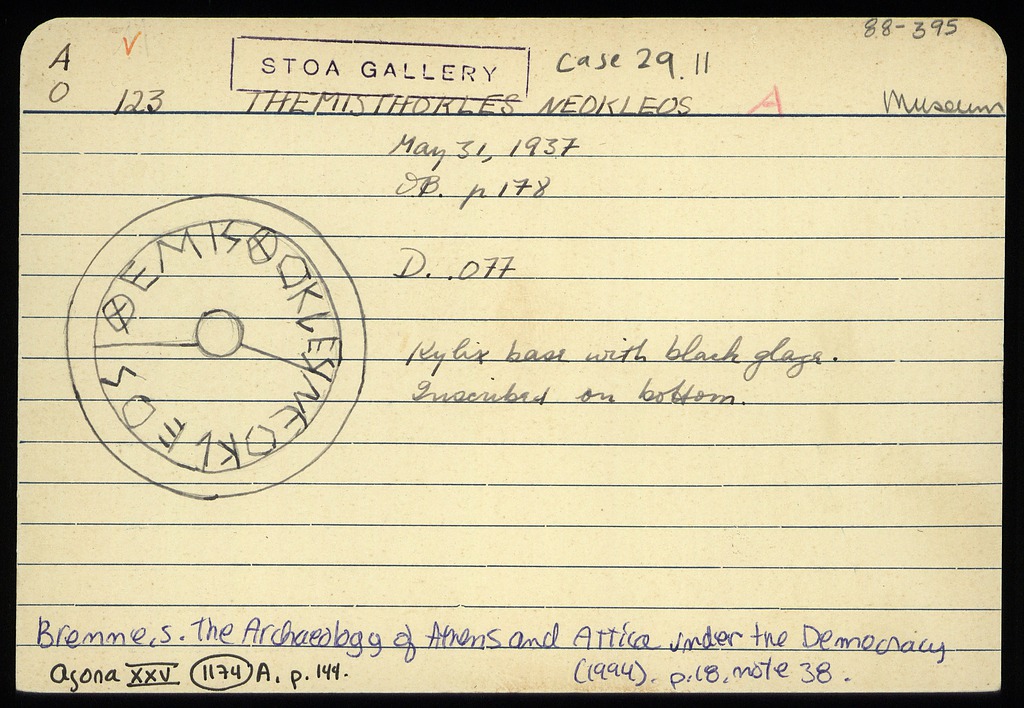 88-395
A V STOA GALLERY Case 29.11
O 123 THEMISTHOKLES NEOKLEOS A Museum
May 31, 1937
p 178
D. .077
ΘEMISΘOKLES NEOKLEOS
Kylix base with black glaze.
Inscribed on bottom.
Bremme, S. The Archaeology of Athens and Attica under the Democracy
(1994). p.18, note 38.
Agora XXV 1174 A, p. 144.